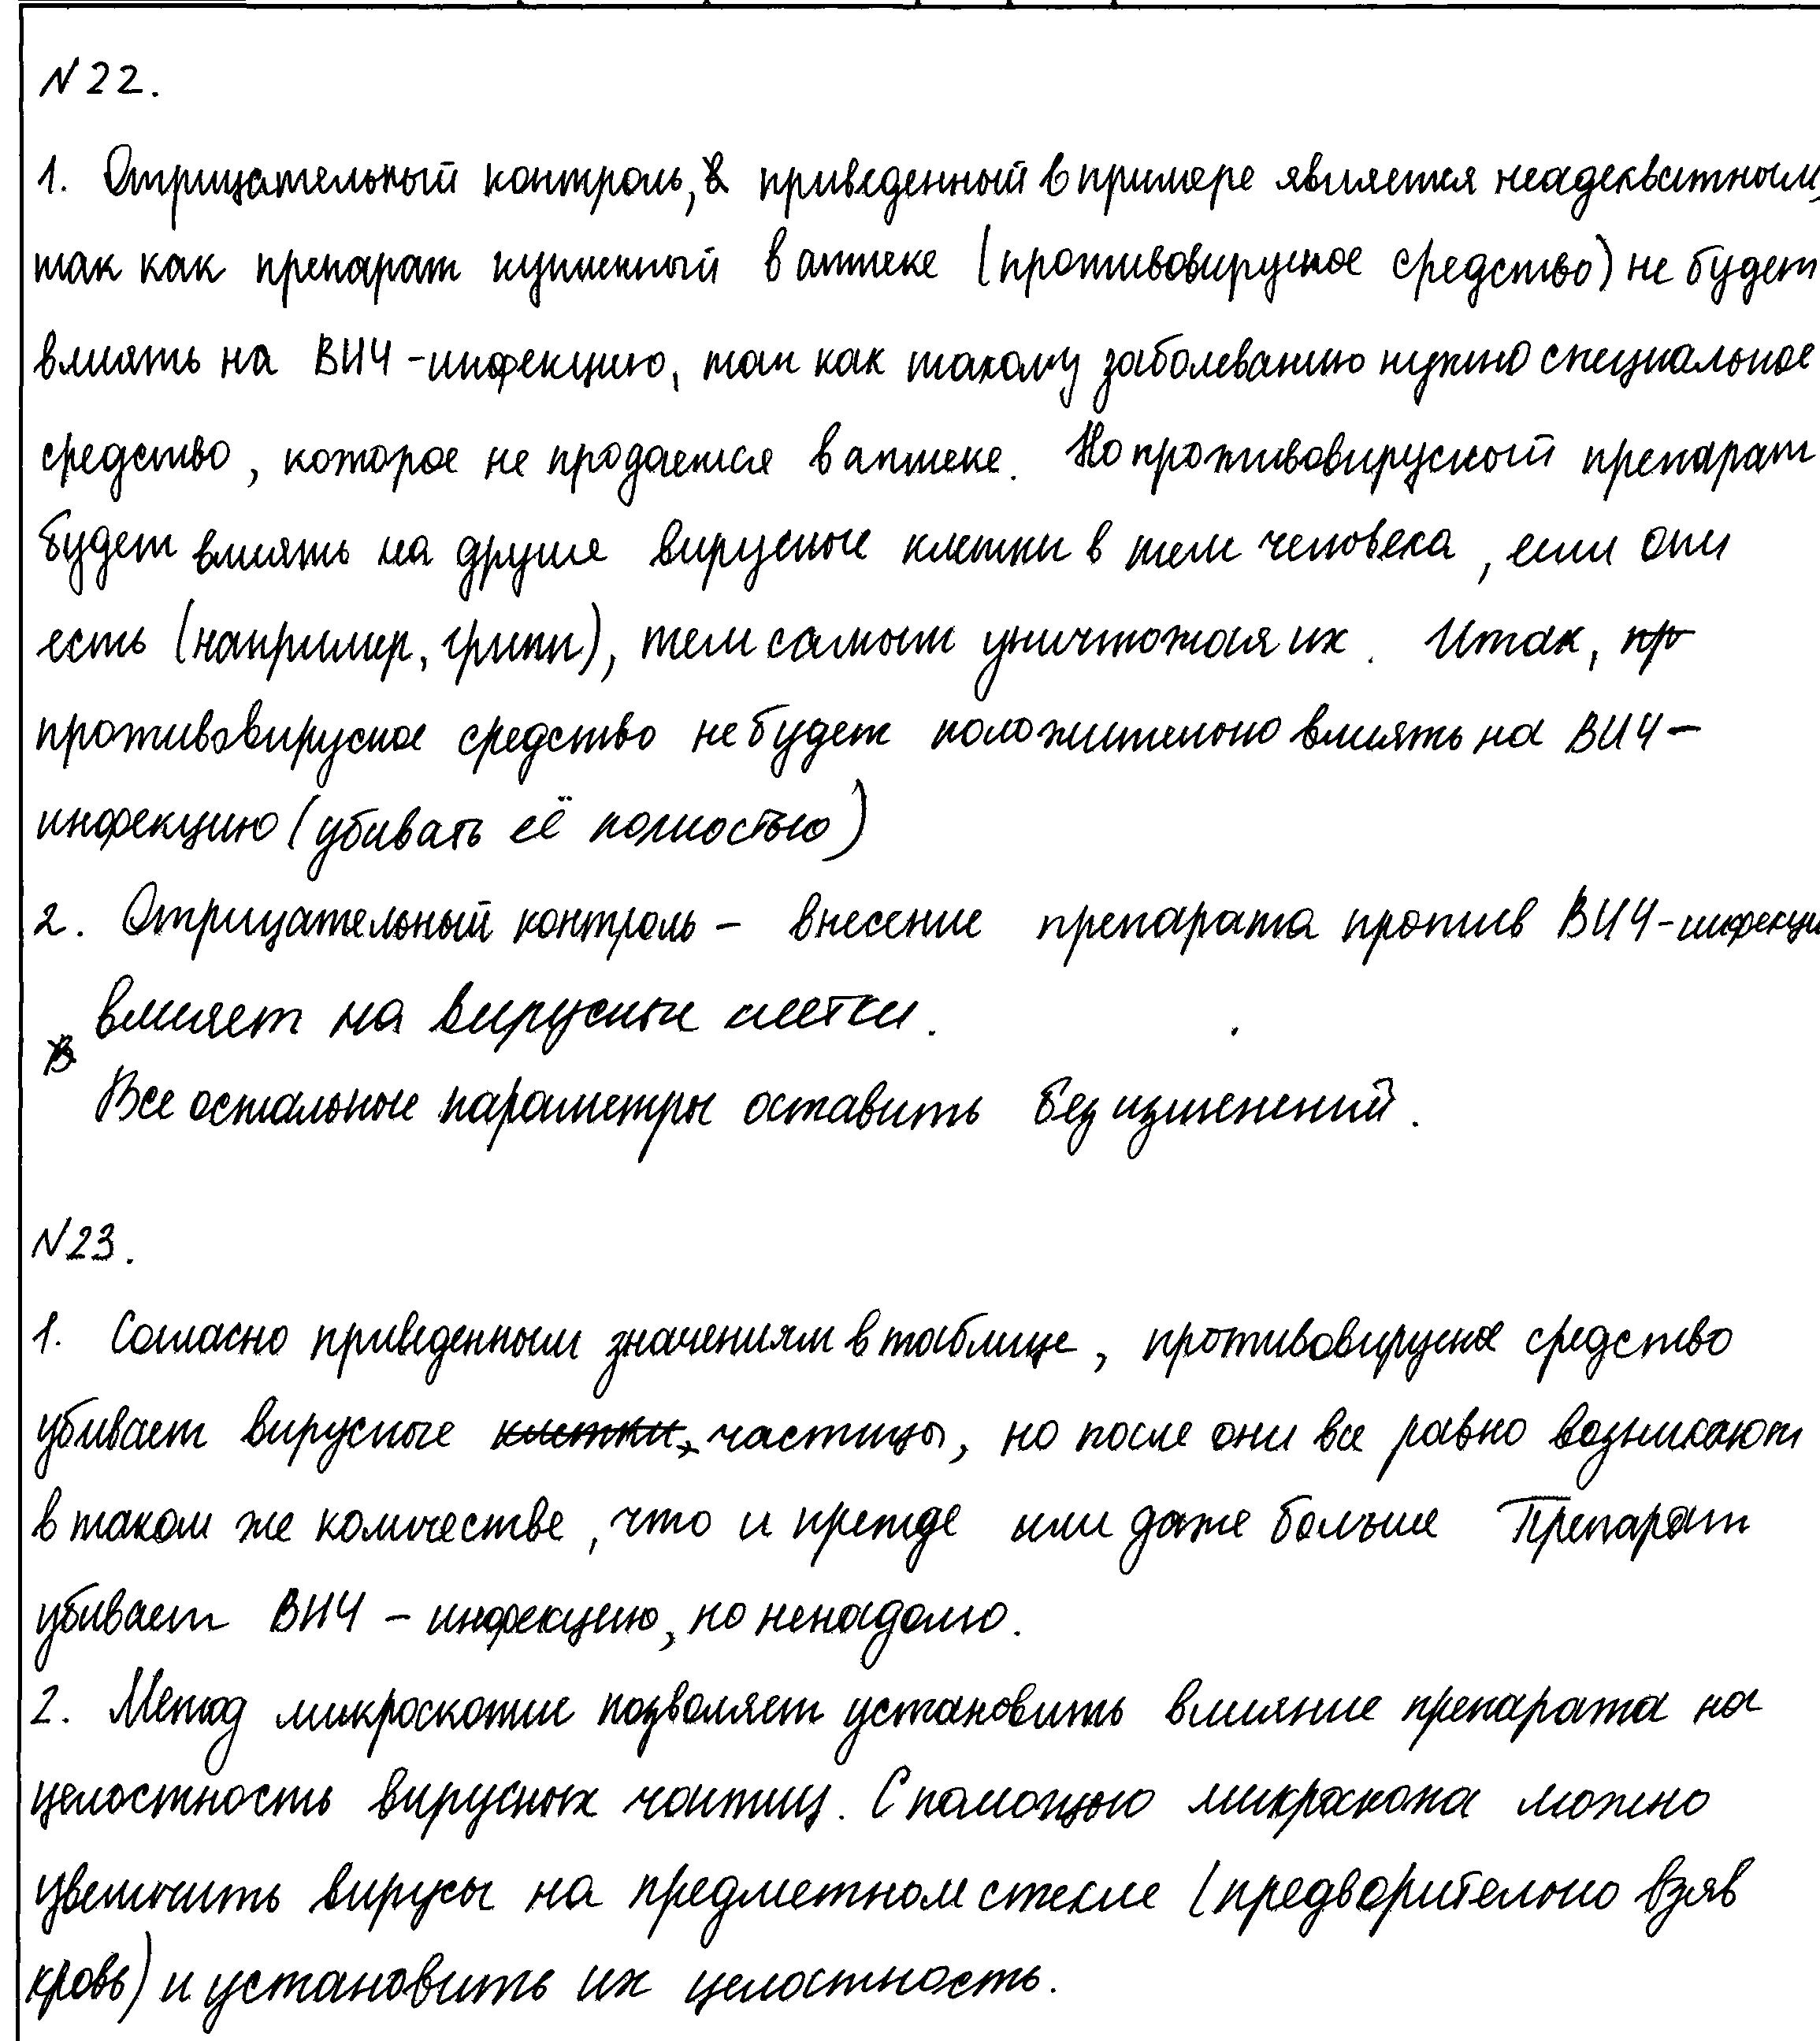 N 22.
1. Отрицательный контроль, приведенный в примере является неадекватным,
так как препарат купленный в аптеке (противовирусное средство) не будет
влиять на ВИЧ-инфекцию, так как такому заболеванию нужно специальное
средство, которое не продается в аптеке. Но противовирусной препарат
будет влиять на другие вирусные клетки в теле человека, если они
есть (например, грипп), тем самым уничтожая их. Итак, пр
противовирусное средство не будет положительно влиять на ВИЧ-
инфекцию (убивать её полностью)
2. Отрицательный контроль - внесение препарата против ВИЧ-инфекции
влияет на вирусные клетки.
Все остальные параметры оставить без изменений.
N23.
1. Согласно приведенным значениям в таблице, противовирусное средство
убивает вирусные клетки, частицы, но после они все равно возникают
в таком же количестве, что и прежде или даже больше Препарат
убивает ВИЧ - инфекцию, но ненадолго.
2. Метод микроскопии позволяет установить влияние препарата на
целостность вирусных частиц. С помощью микроскопа можно
увеличить вирусы на предметном стекле (предворительно взяв
кровь) и установить их целостность.